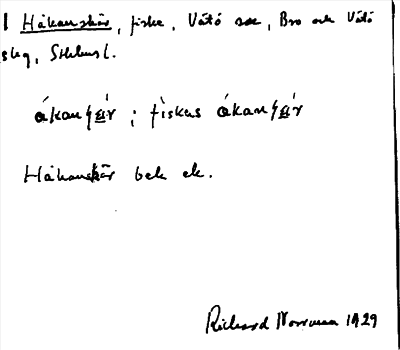 1 Håkanskär, fiske, Vätö sn, Bro och Vätö
slg, Sthlms l.
ákanʃæ̀r ; fiskas ákanʃæ̀r
Håkanskär bek ek.
Rickard Norman 1929